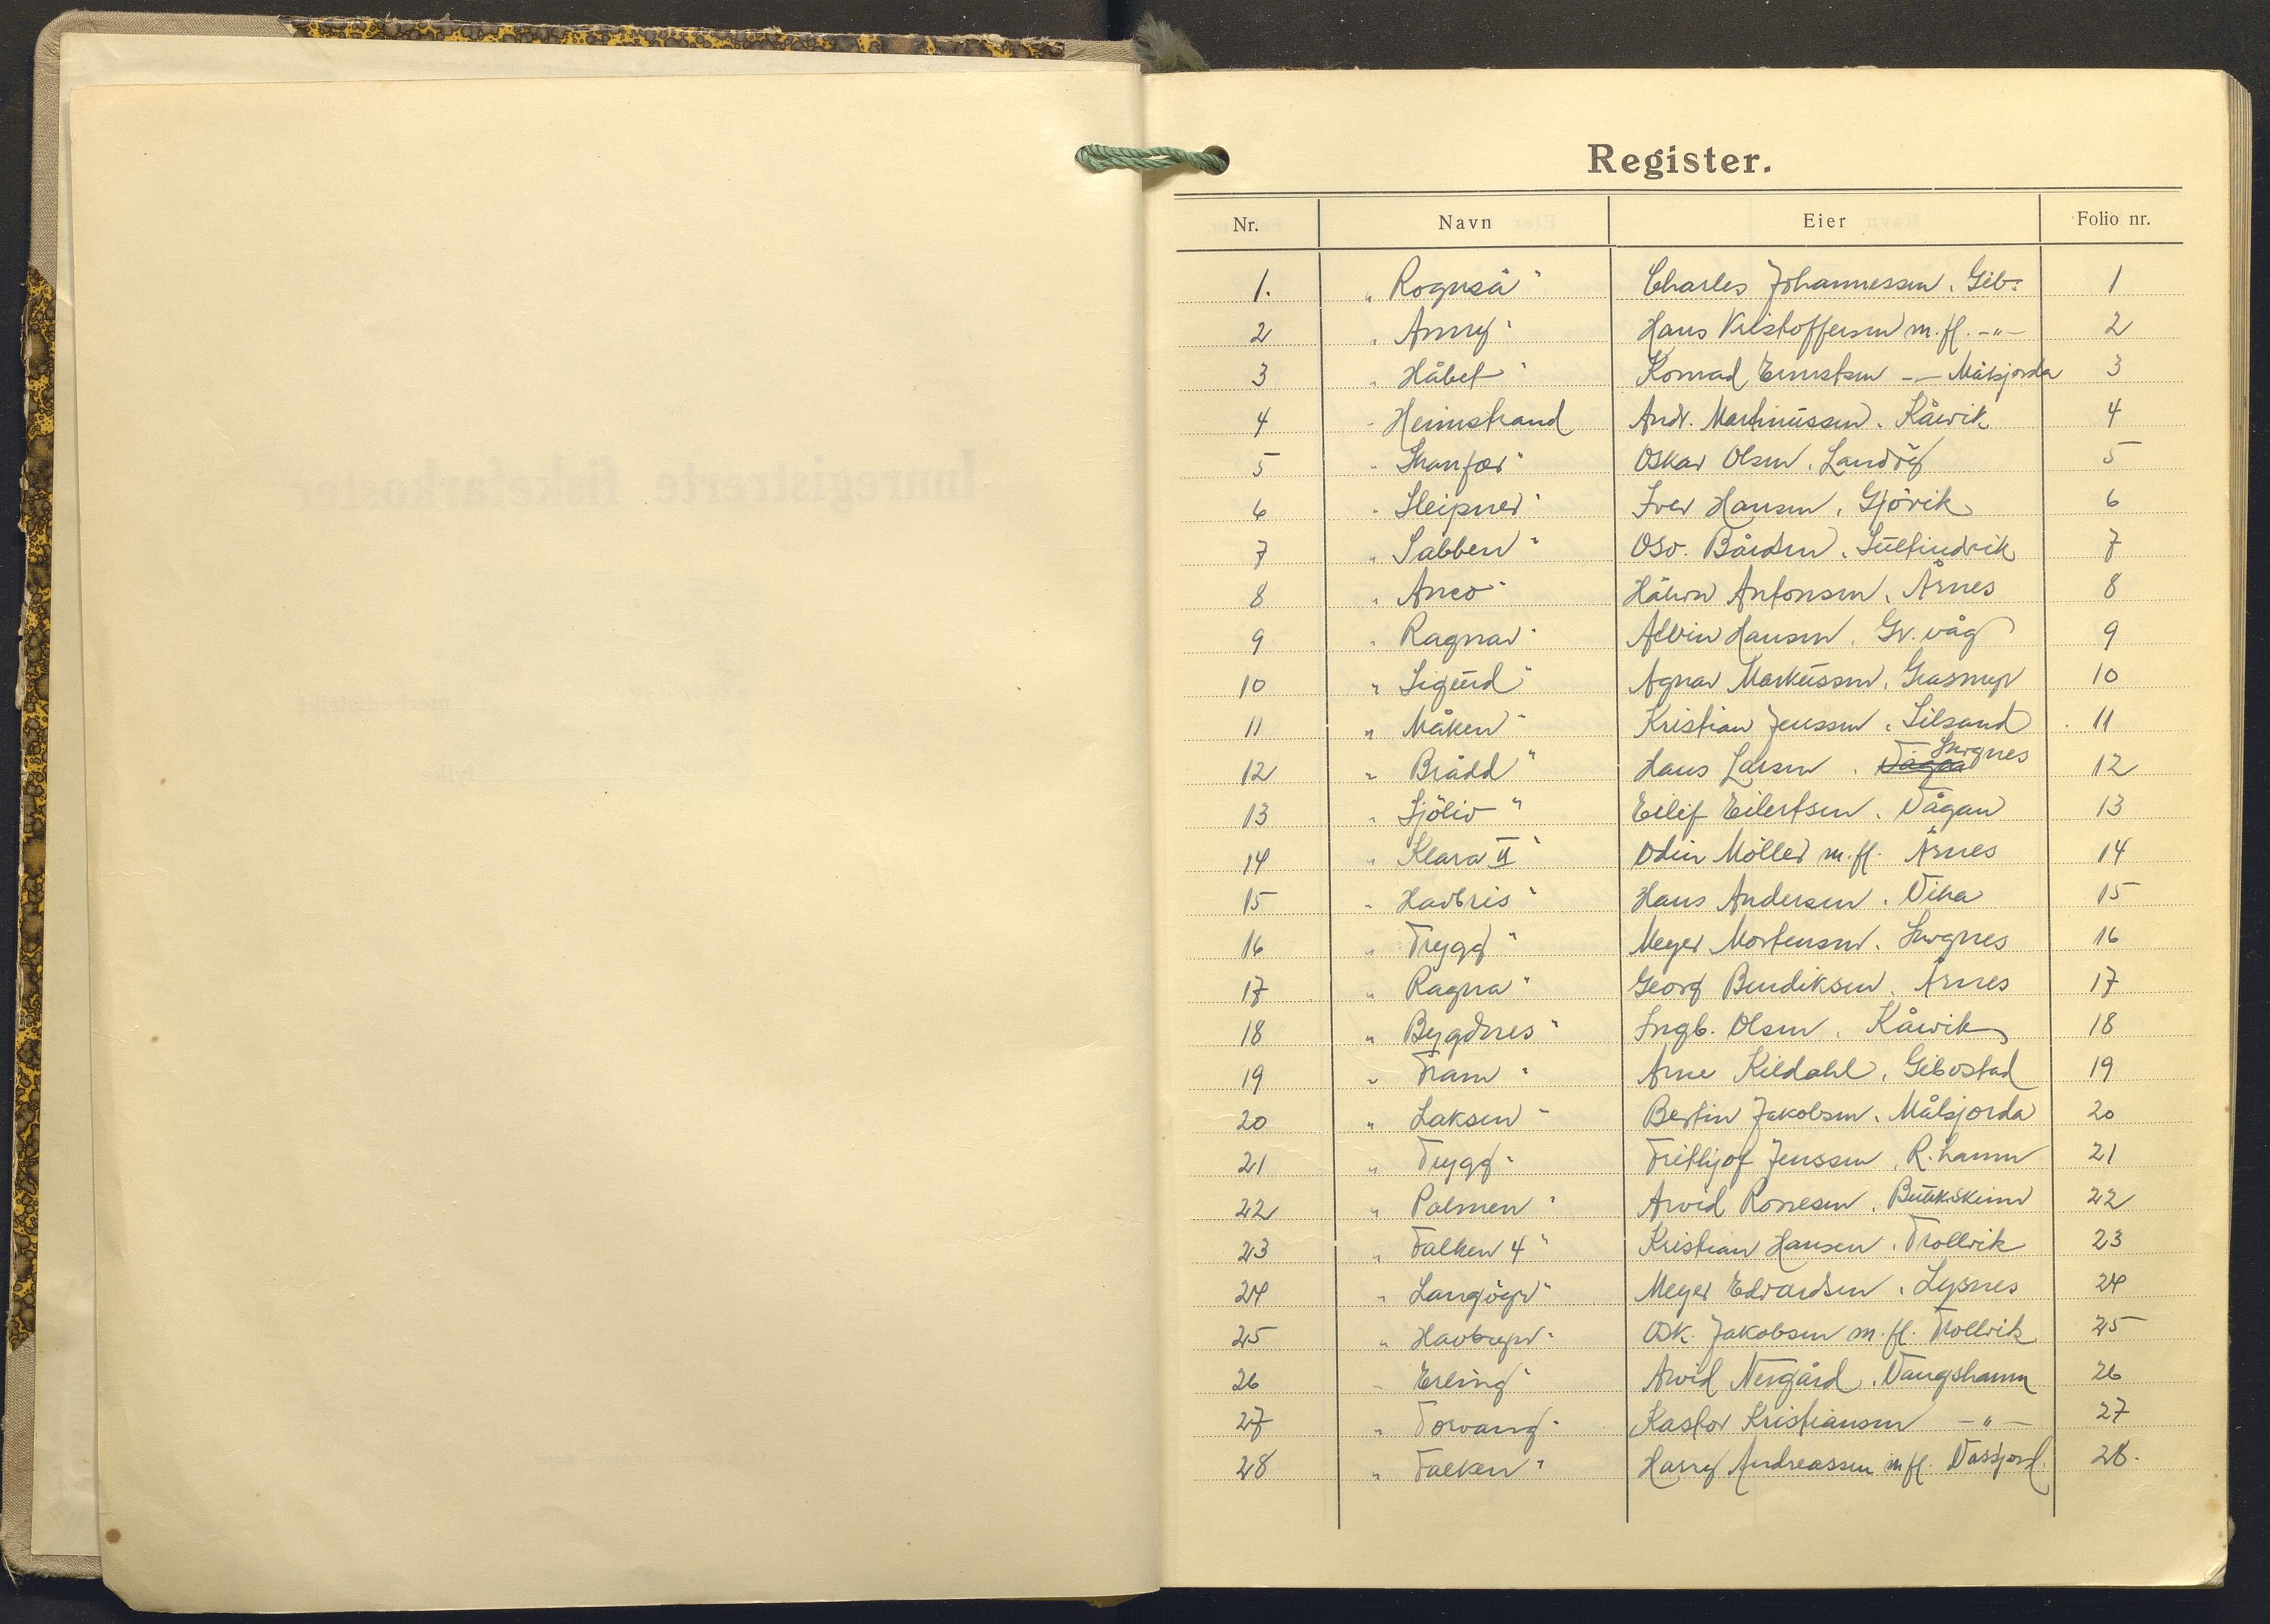 Register.
Nr. Navn Eier Folio nr.
1. "Rognså" Charles Johannessen. Gib. 1
2 "Anny" Hans Kristoffersen m.fl. -"- 2
3 "Håbet" Konrad Ernstsen -"- Målsjorda 3
4 "Heimstrand Andr. Martinussen. Kårvik 4
5 "Skanfer" Oskar Olsen. Landöy 5
6 "Sleipner" Iver Hansen, Gjövik 6
7 "Sabben" Osv. Bårdsen. Sultindvik 7
8 "Anco" Håkon Antonsen, Årnes 8
9 "Ragnar" Alvin Hansen. Gr.våg 9
10 "Sigurd" Agnar Markussen, Grasmyr 10
11 "Måken" Kristian Jenssen. Silsand 11
12 "Brådd" Hans Larsen. Vågan Lysgnes 12
13 "Sjöliv" Eilif Eilertsen. Vågan 13
14 "Klara II" Odin Möller m.fl. Årnes 14
15 "Havbris" Hans Andersen. Vika 15
16 "Trygg" Meyer Mortensen. 16
17 "Ragna" Georg Bendiksen. Årnes 17
18 "Bygdnes" Ingb. Olsen. Kårvik 18
19 "Fram" Arne Kildahl, Gibostad 19
20 "Laksen" Bertin Jakobsen. Målsjorda 20
21 "Trygg" Frithjof Jenssen, R.hamn 21
22 "Palmen" Arvid Ronesen. Bukkskinn 22
23 "Falken 4" Kristian Hansen. Trollvik 23
24 "Langöyr" Meyer Edvardsen. Lysnes 24
25 "Havbryn" Osk. Jakobsen m.fl. Trollvik 25
26 "Erling" Arvid Nergård. Vangshamn 26
27 "Torvang" Kastor Kristiansen -"- 27
28 "Falken" Harry Andreassen m fl. Vassjord. 28.